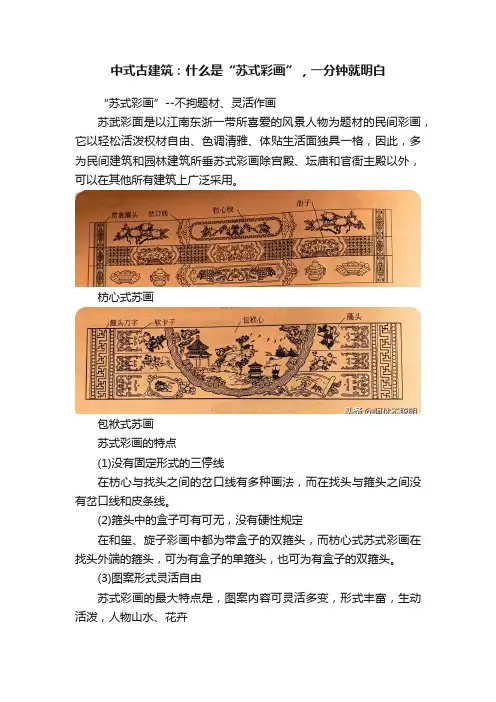 中式古建筑：什么是“苏式彩画”，一分钟就明白
“苏式彩画”--不拘题材、灵活作画
苏武彩面是以江南东浙一带所喜爱的风景人物为题材的民间彩画，
它以轻松活泼权材自由、色调清雅、体贴生活面独具一格，因此，多
为民间建筑和园林建筑所垂苏式彩画除宫殿、坛庙和官衙主殿以外，
可以在其他所有建筑上广泛采用。
箍头 岔口线 枋心线 池子
枋心式苏画
箍头万字 软卡子 包袱心 箍头
头条
包袱式苏画
苏式彩画的特点
(1)没有固定形式的三停线
在枋心与找头之间的岔口线有多种画法，而在找头与箍头之间没
有岔口线和皮条线。
(2)箍头中的盒子可有可无，没有硬性规定
在和玺、旋子彩画中都为带盒子的双箍头，而枋心式苏式彩画在
找头外端的箍头，可为有盒子的单箍头，也可为有盒子的双箍头。
(3)图案形式灵活自由
苏式彩画的最大特点是，图案内容可灵活多变，形式丰富，生动
活泼，人物山水、花卉